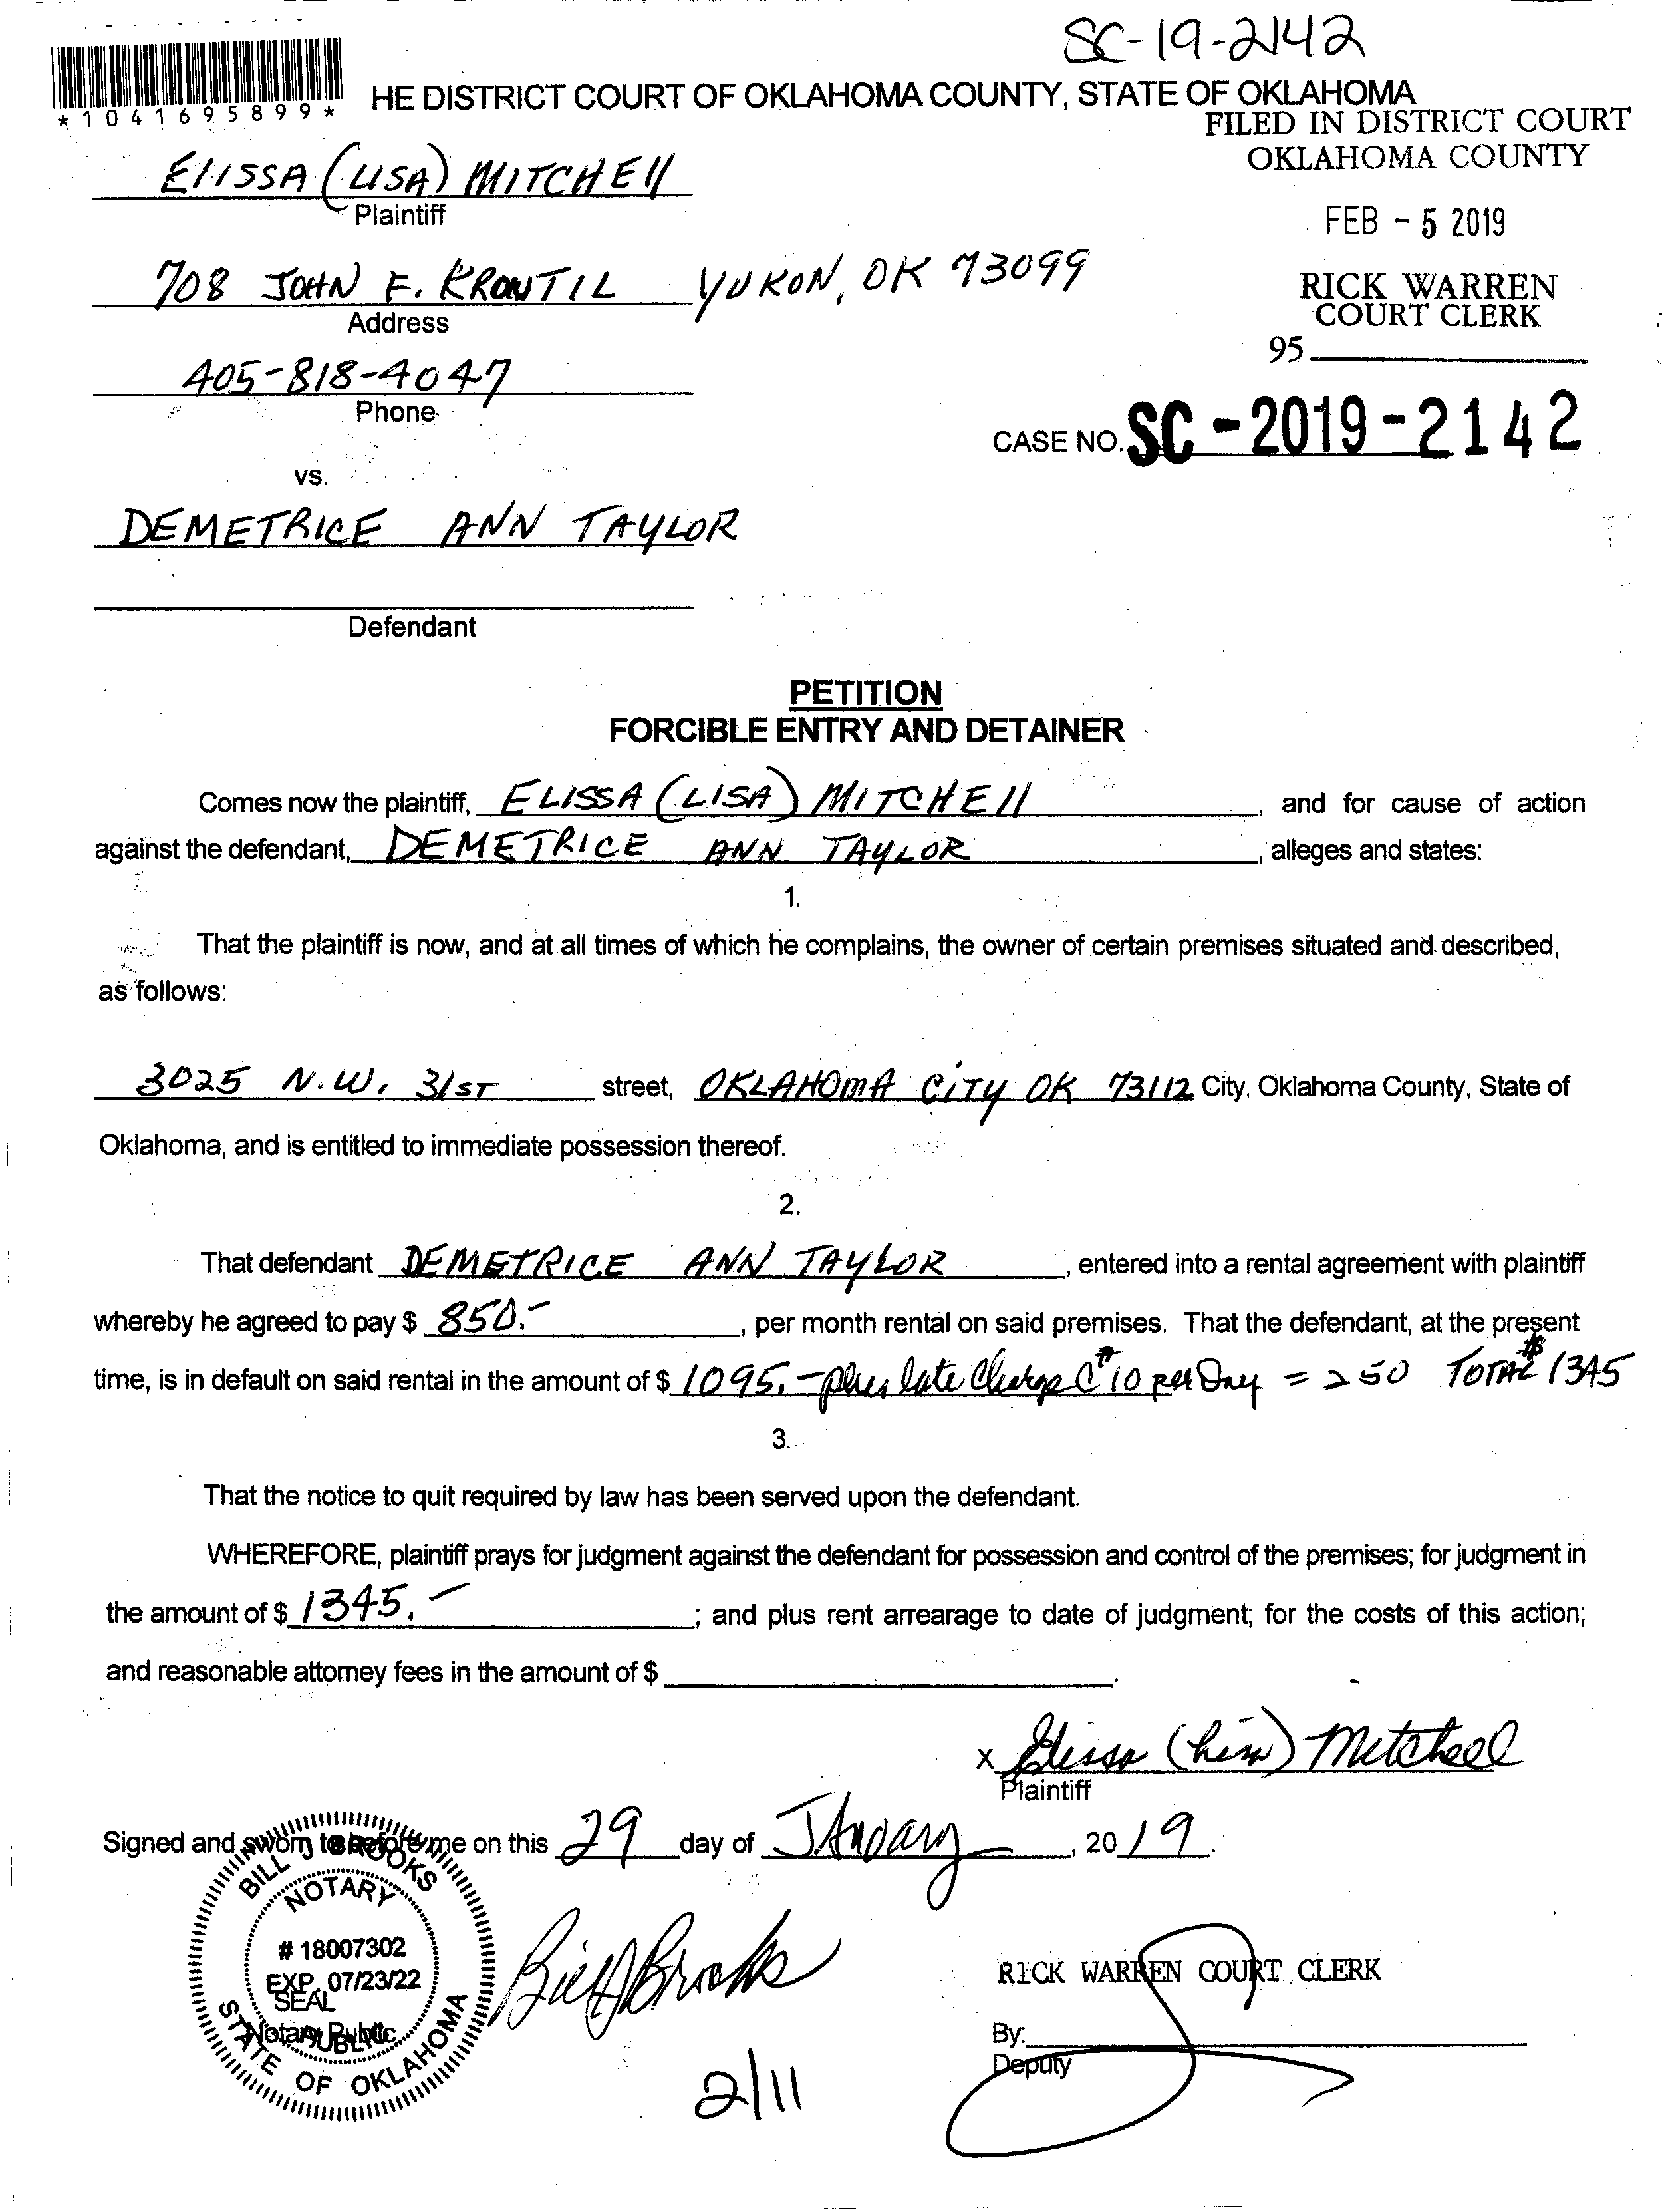 SC-19-2142
*1041695899*
HE DISTRICT COURT OF OKLAHOMA COUNTY, STATE OF OKLAHOMA
FILED IN DISTRICT COURT
OKLAHOMA COUNTY
ElISSA (LISA) MITCHEll
Plaintiff
FEB - 5 2019
708 JOHN F. KROUTIL YUKON, OK 73099
Address
RICK WARREN
COURT CLERK
95
405-818-4047
Phone
CASE NO. SC - 2019 - 2142
vs.
DEMETRICE ANN TAYLOR
Defendant
PETITION
FORCIBLE ENTRY AND DETAINER
Comes now the plaintiff, ELISSA (LISA) MITCHEll, and for cause of action
against the defendant, DEMETRICE ANN TAYLOR, alleges and states:
1.
That the plaintiff is now, and at all times of which he complains, the owner of certain premises situated and described,
as follows:
3025 N.W. 31ST street, OKLAHOMA CiTY OK 73112 City, Oklahoma County, State of
Oklahoma, and is entitled to immediate possession thereof.
2.
That defendant DEMETRICE ANN TAYLOR, entered into a rental agreement with plaintiff
whereby he agreed to pay $ 850.-, per month rental on said premises. That the defendant, at the present
time, is in default on said rental in the amount of $ 1095.- plus late Charge @ $10 per Day = 250 TOTAL $1345
3.
That the notice to quit required by law has been served upon the defendant.
WHEREFORE, plaintiff prays for judgment against the defendant for possession and control of the premises; for judgment in
the amount of $ 1345.-; and plus rent arrearage to date of judgment; for the costs of this action;
and reasonable attorney fees in the amount of $ .
x Elissa (Lisa) Mitchell
Plaintiff
Signed and sworn to before me on this 29 day of JAnuary, 20 19.
BILL J BROOKS
NOTARY
# 18007302
EXP. 07/23/22
SEAL
Notary Public
PUBLIC
STATE OF OKLAHOMA
Bill J Brooks
RICK WARREN COURT CLERK
By:
Deputy
2/11